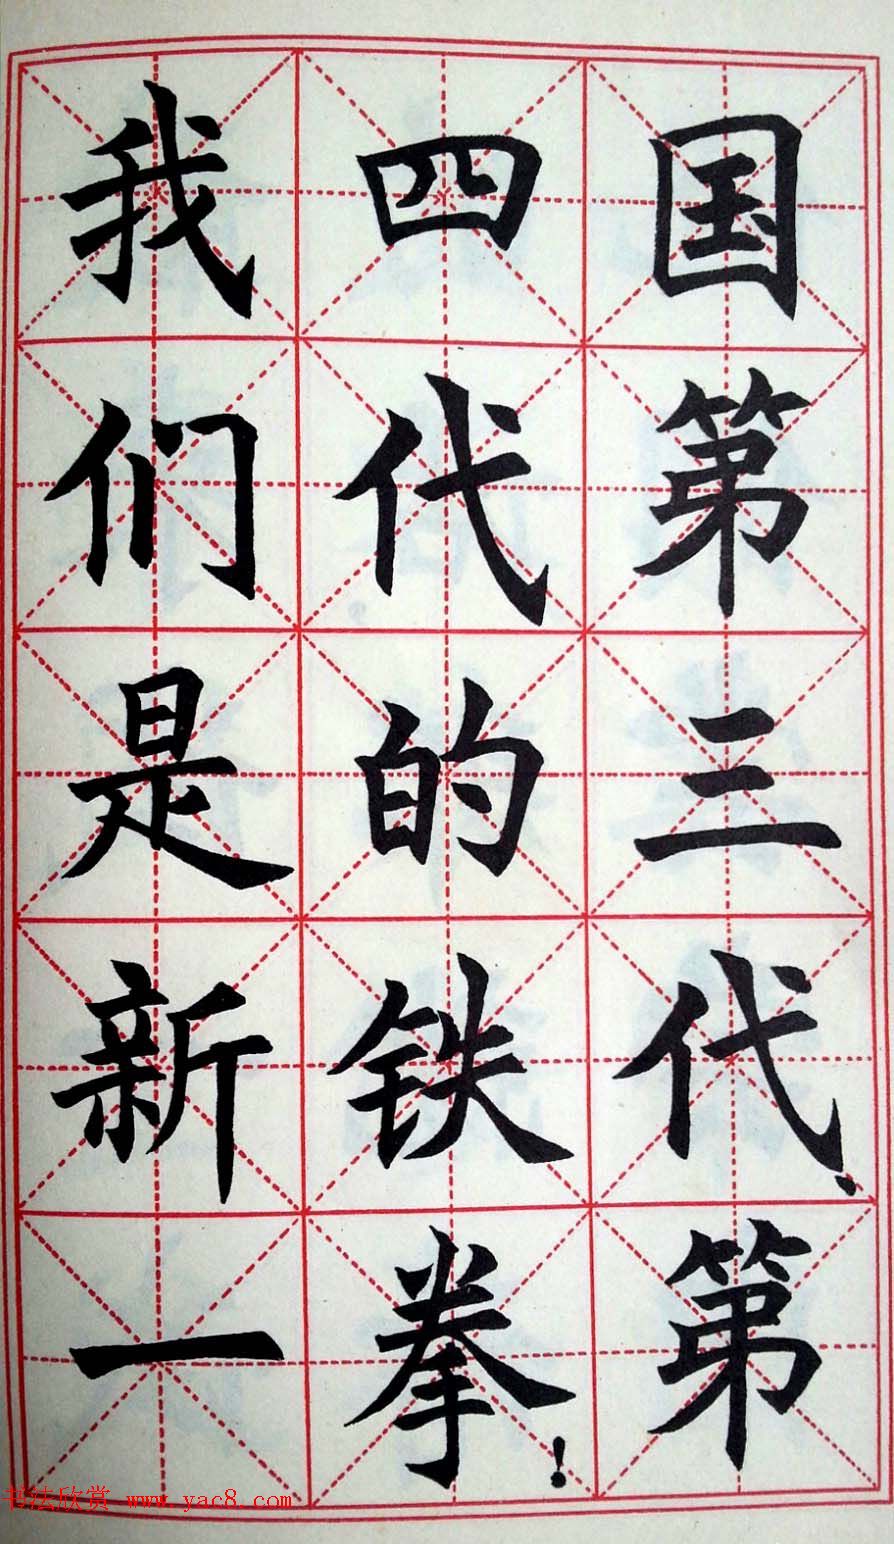 国第三代、第
四代的铁拳！
我们是新一
书法欣赏 www.yac8.com